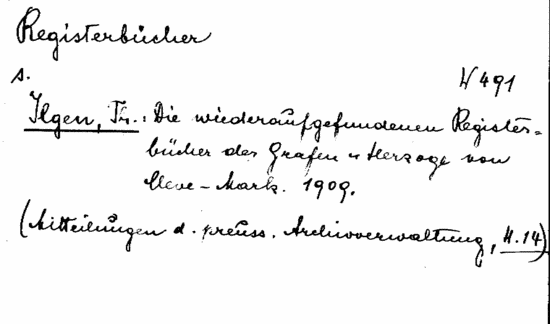 Registerbücher
s. W 491
Ilgen, Th.: Die wiederaufgefundenen Register-
bücher der Grafen u Herzoge von
Cleve-Mark. 1909.
(Mitteilungen d. preuss. Archivverwaltung, H. 14)